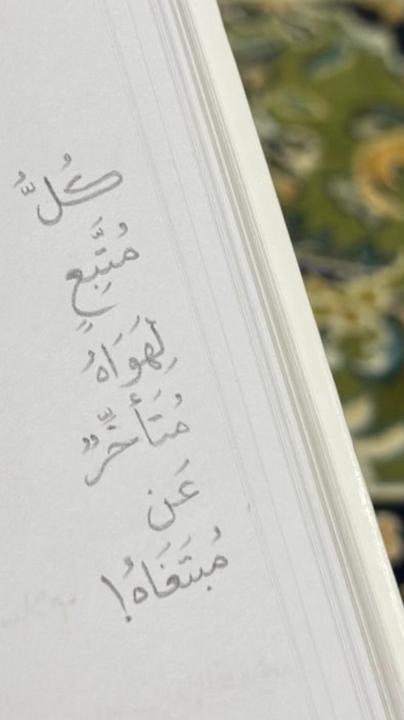 كُلُّ
مُتَّبِعٍ
لِهَوَاهُ
مُتَأَخِّرٌ
عَن
مُبتَغَاهُ!